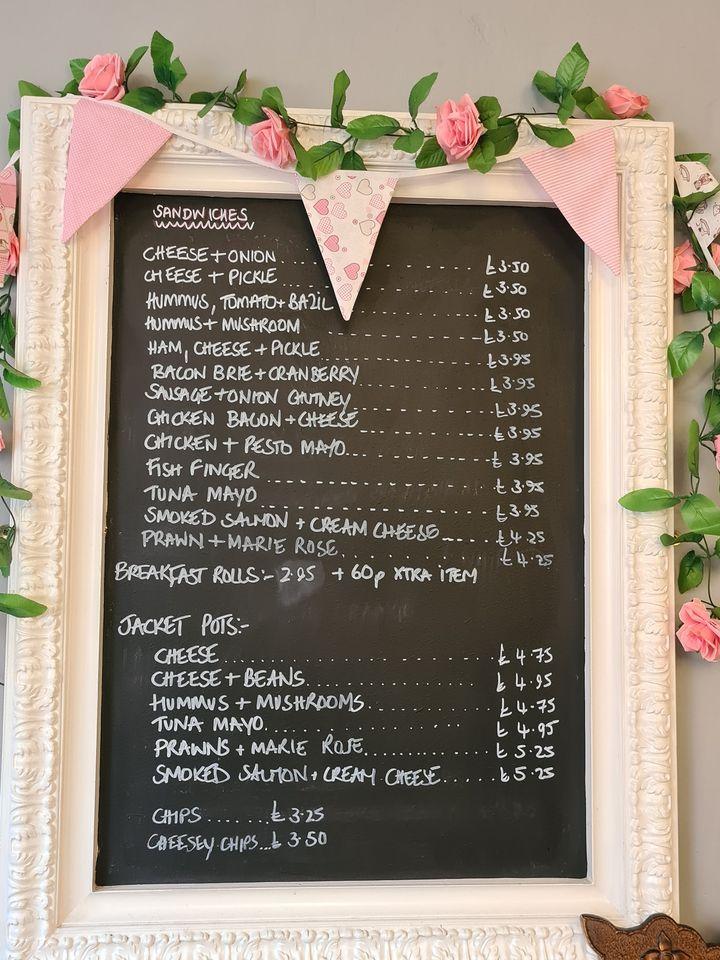 SANDWICHES
CHEESE + ONION ............ £3.50
CHEESE + PICKLE ............ £3.50
HUMMUS, TOMATO + BAZIL ............ £3.50
HUMMUS + MUSHROOM ............ £3.50
HAM, CHEESE + PICKLE ............ £3.95
BACON BRIE + CRANBERRY ............ £3.95
SAUSAGE + ONION CHUTNEY ............ £3.95
CHICKEN BACON + CHEESE ............ £3.95
CHICKEN + PESTO MAYO ............ £3.95
FISH FINGER ............ £3.95
TUNA MAYO ............ £3.95
SMOKED SALMON + CREAM CHEESE ...... £4.25
PRAWN + MARIE ROSE ............ £4.25
BREAKFAST ROLLS:- 2.95 + 60p XTRA ITEM
JACKET POTS:-
CHEESE ............ £4.75
CHEESE + BEANS ............ £4.95
HUMMUS + MUSHROOMS ............ £4.75
TUNA MAYO ............ £4.95
PRAWNS + MARIE ROSE ............ £5.25
SMOKED SALMON + CREAM CHEESE ...... £5.25
CHIPS ....... £3.25
CHEESEY CHIPS ... £3.50